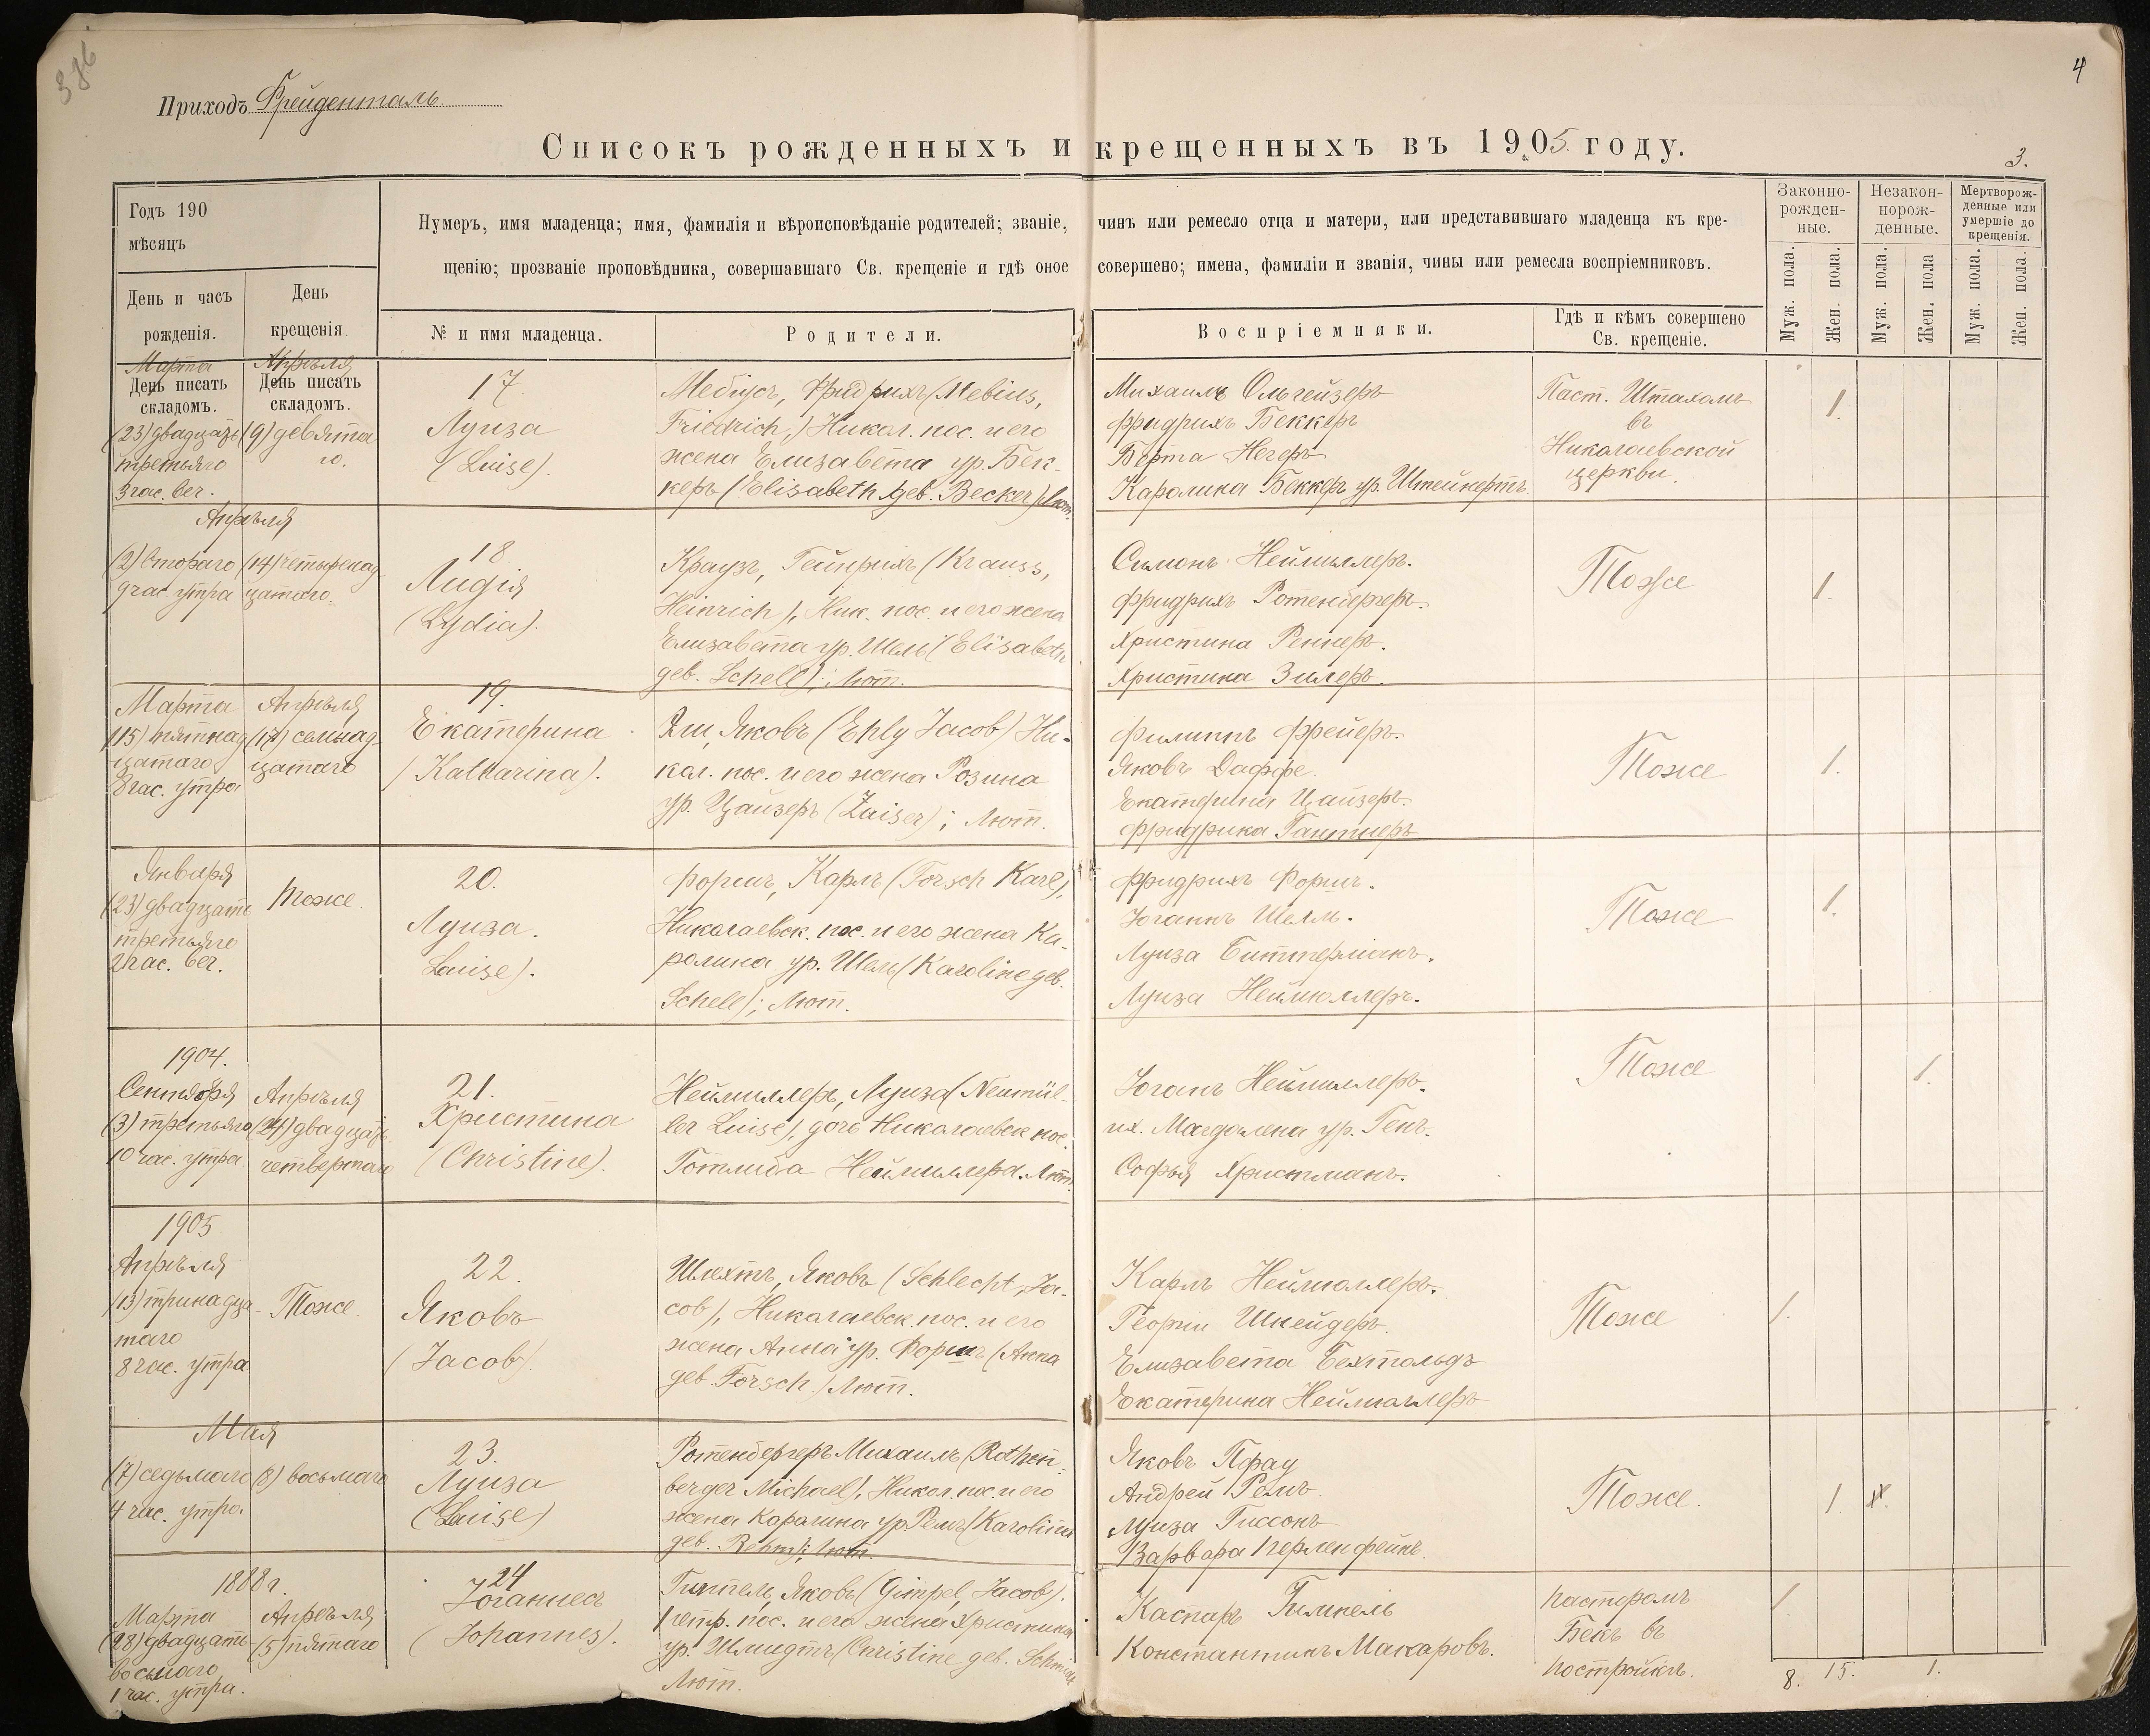 386
4
Приходъ Фрейденталь
Списокъ рожденныхъ и крещенныхъ въ 1905 году.
3.
Годъ 190
мѣсяцъ
День и часъ
рожденія.
День
крещенія.
Нумеръ, имя младенца; имя, фамилія и вѣроисповѣданіе родителей; званіе, чинъ или ремесло отца и матери, или представившаго младенца къ кре-
щенію; прозваніе проповѣдника, совершавшаго Св. крещеніе и гдѣ оное совершено; имена, фамиліи и званія, чины или ремесла воспріемниковъ.
№ и имя младенца.
Родители.
Воспріемники.
Гдѣ и кѣмъ совершено
Св. крещеніе.
Законно-
рожден-
ные.
Незакон-
норож-
денные.
Мертворож-
денные или
умершіе до
крещенія.
Муж. пола.
Жен. пола.
Муж. пола.
Жен. пола
Муж. пола.
Жен. пола.
Марта
День писать
складомъ.
(23) двадцать
третьяго
3 час. веч.
Апрѣля
День писать
складомъ.
(9) девята
го.
17.
Луиза
(Luise).
Мебіусъ, Фридрихъ (Mebius,
Friedrich,) Никол. пос. и его
жена Елизавета ур. Бек-
керъ (Elisabeth geb. Becker) Лют.
Михаилъ Ольгейзеръ
Фридрихъ Беккеръ
Берта Негеръ
Каролина Беккеръ ур. Штейнертъ
Паст. Штахомъ
въ
Николаевской
церкви.
1.
Апрѣля
(2) втораго
9 час утра
(14) четыренад
цатаго.
18.
Лидія
(Lydia).
Краузъ, Гейнрихъ (Krauss,
Heinrich), Ник. пос. и его жена
Елизавета ур. Шель (Elisabeth
geb. Schell); Лют.
Симонъ Неймиллеръ.
Фридрихъ Ротенбергеръ.
Христина Реннеръ.
Христина Зилеръ.
Тоже
1.
Марта
(15) пятнад
цатаго
8 час. утра
Апрѣля
(17) семнад-
цатаго
19.
Екатерина
(Katharina).
Эли, Яковъ (Ehly Jacob) Ни-
кол. пос. и его жена Розина
ур. Цайзеръ (Zaiser); Лют.
Филиппъ Фрейеръ.
Яковъ Даффе.
Екатерина Цайзеръ.
Фридрика Гантнеръ
Тоже
1.
Января
(23) двадцать
третьяго
2 час. веч.
Тоже.
20.
Луиза.
Louise).
Форшъ, Карлъ (Forsch Karl),
Николаевск. пос. и его жена Ка-
ролина ур. Шель (Karoline geb.
Schell); Лют.
Фридрихъ Форшъ.
Іоганнъ Шелль.
Луиза Биттерманъ.
Луиза Неймюллеръ.
Тоже
1.
1904.
Сентября
(3) третьяго
10 час. утра
Апрѣля
(24) двадцать
четвертаго
21.
Христина
(Christine).
Неймиллеръ, Луиза (Neumül-
ler Luise), дочь Николаевск. пос.
Готлиба Неймиллера. Лют.
Іоганъ Неймиллеръ.
их. Магдалена ур. Генъ.
Софья Христманъ.
Тоже
1.
1905
Апрѣля
(13) тринадца-
таго
8 час. утра
Тоже.
22.
Яковъ
(Jacob).
Шлехтъ, Яковъ (Schlecht, Ja-
cob), Николаевск. пос. и его
жена Анна ур. Форшъ (Anna
geb. Forsch) Лют.
Карлъ Неймюллеръ.
Георгіи Шнейдеръ.
Елизавета Бехтольдъ
Екатерина Неймюллеръ
Тоже
1.
Мая
(7) седьмаго
4 час. утра.
(8) восьмаго
23.
Луиза
(Louise)
Ротенбергеръ Михаилъ (Rothen-
berger Michael), Никол. пос. и его
жена Каролина ур. Ремъ (Karolina
geb. Rehm); Лют.
Яковъ Пфау
Андрей Ремъ.
Луиза Гиссонъ
Варвара Перленфейнъ.
Тоже.
1.
1888 г.
Марта
(28) двадцать
восьмаго
1 час. утра.
Апрѣля
(5) пятаго
24
Іоганнес
(Johannes).
Гимпель, Яковъ (Gimpel, Jacob).
Петр. пос. и его жена Христина
ур. Шмидтъ (Christine geb. Schmidt
Лют.
Каспаръ Гимпель
Константинъ Макаровъ.
Пасторомъ
Бекъ въ
Постройкѣ.
1
8. 15. 1.